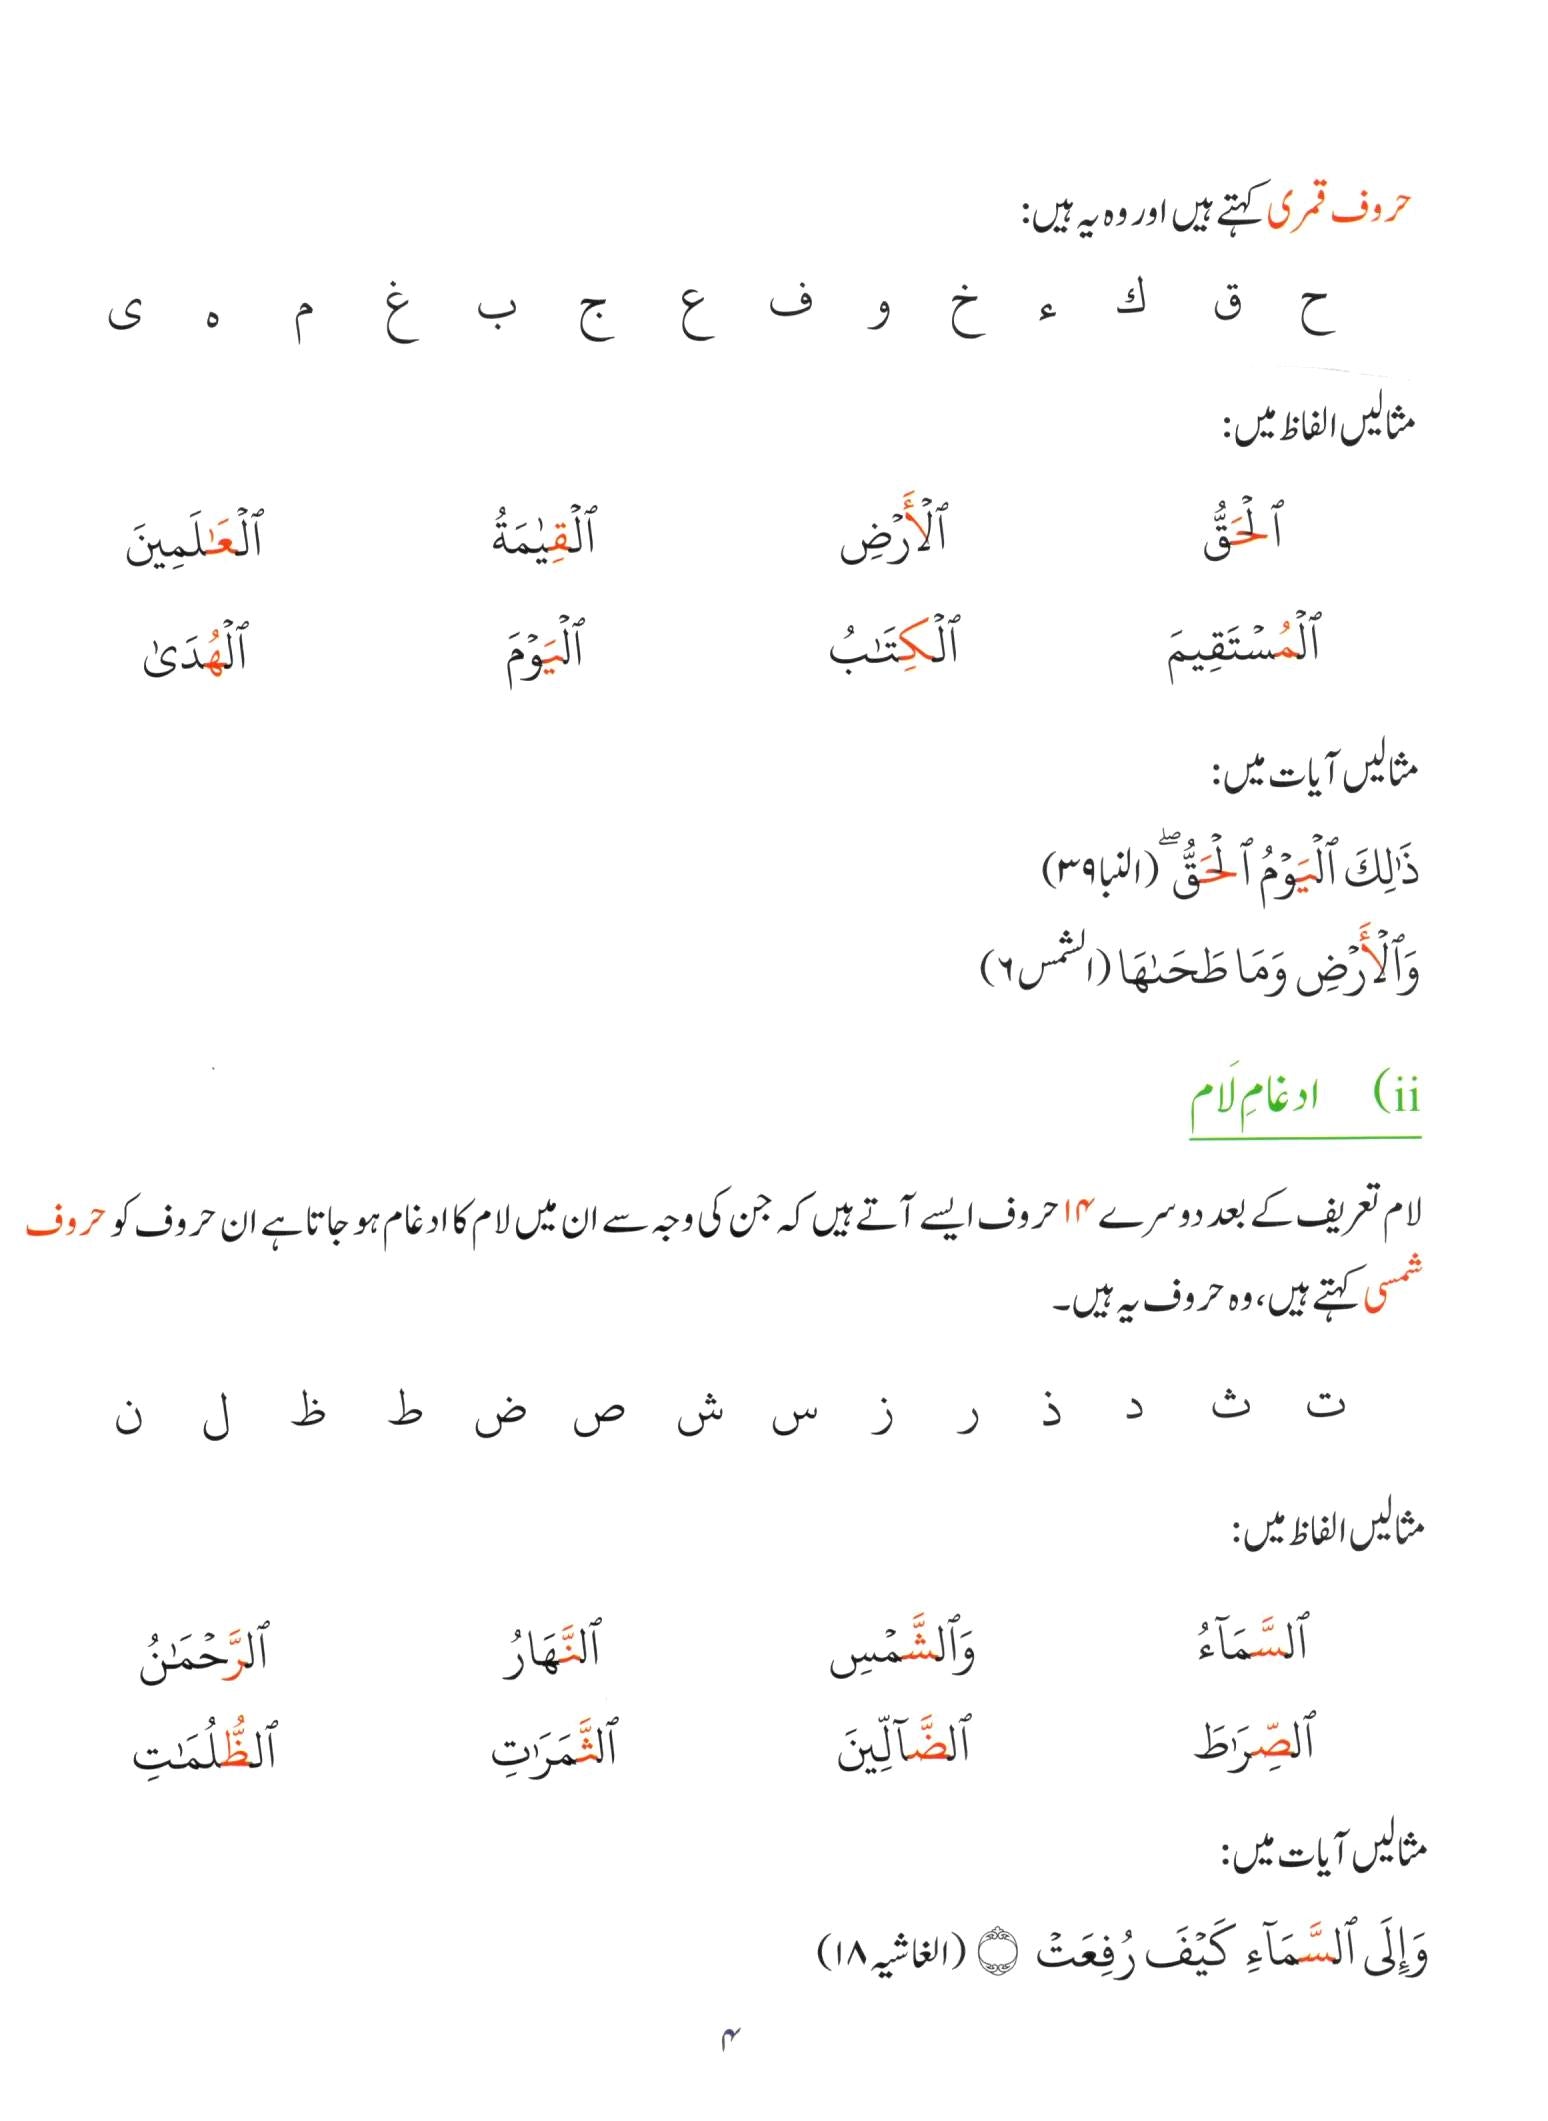 حروف قمری کہتے ہیں اور وہ یہ ہیں:
ح ق ك ء خ و ف ع ج ب غ م ه ى
مثالیں الفاظ میں:
ٱلۡحَقُّ ٱلۡأَرۡضِ ٱلۡقِيَٰمَةُ ٱلۡعَٰلَمِينَ
ٱلۡمُسۡتَقِيمَ ٱلۡكِتَٰبُ ٱلۡيَوۡمَ ٱلۡهُدَىٰ
مثالیں آیات میں:
ذَٰلِكَ ٱلۡيَوۡمُ ٱلۡحَقُّۖ (النبا ۳۹)
وَٱلۡأَرۡضِ وَمَا طَحَىٰهَا (الشمس ۶)
ii) ادغامِ لَام
لام تعریف کے بعد دوسرے ۱۴ حروف ایسے آتے ہیں کہ جن کی وجہ سے ان میں لام کا ادغام ہو جاتا ہے ان حروف کو حروف
شمسی کہتے ہیں، وہ حروف یہ ہیں۔
ت ث د ذ ر ز س ش ص ض ط ظ ل ن
مثالیں الفاظ میں:
ٱلسَّمَآءُ وَٱلشَّمۡسِ ٱلنَّهَارُ ٱلرَّحۡمَٰنُ
ٱلصِّرَٰطَ ٱلضَّآلِّينَ ٱلثَّمَرَٰتِ ٱلظُّلُمَٰتِ
مثالیں آیات میں:
وَإِلَى ٱلسَّمَآءِ كَيۡفَ رُفِعَتۡ ۝ (الغاشیہ ۱۸)
۴